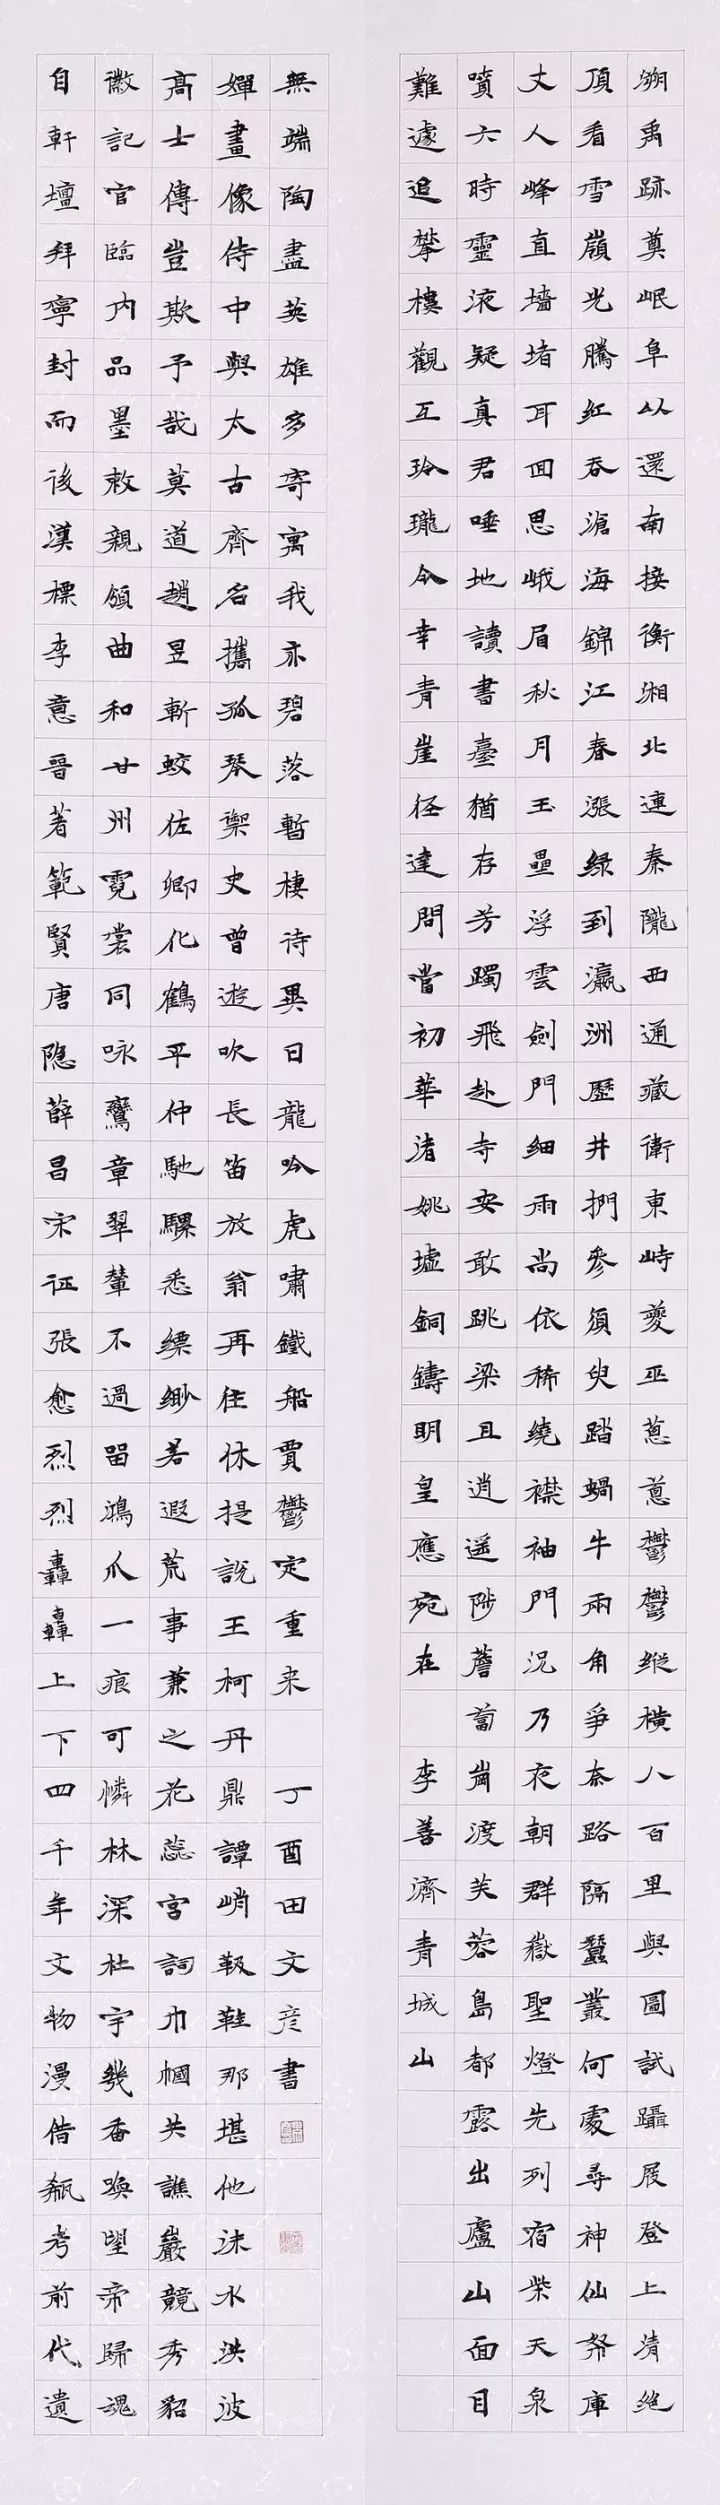 溯禹跡奠岷阜以還南接衡湘北連秦隴西通藏衛東峙夔巫蔥蔥鬱鬱縱橫八百里與圖試躡屐登上清絕
頂看雪嶺光騰紅吞滄海錦江春漲綠到瀛洲歷井捫參須臾踏蝸牛兩角爭奈路隔蠶叢何處尋神仙帑庫
丈人峰直墻堵耳回思峨眉秋月玉壘浮雲劍門細雨尚依稀繞襟袖門況乃夜朝群嶽聖燈先列宿柴天泉
噴六時靈液疑真君唾地讀書臺猶存芳躅飛赴寺安敢跳梁且逍遙陟薝蔔崗渡芙蓉島都露出廬山面目
難遽追攀樓觀互玲瓏今幸青崖徑達問當初華渚姚墟銅鑄明皇應宛在 李善濟青城山
自軒壇拜寧封而後漢標李意晉著範賢唐隱薛昌宋征張愈烈烈轟轟上下四千年文物漫借瓻考前代遺
徽記官臨內品墨敕親頒曲和甘州霓裳同詠鸞章翠輦不過留鴻爪一痕可憐林深杜宇幾番喚望帝歸魂
高士傳豈欺予哉莫道趙昱斬蛟佐卿化鶴平仲馳騾悉縹緲若遐荒事兼之花蕊宮詞巾幗共譙巖競秀貂
嬋畫像侍中與太古齊名攜孤琴禦史曾遊吹長笛放翁再往休提說王柯丹鼎譚峭靸鞋那堪他沫水洪波
無端陶盡英雄多寄寓我亦碧落暫棲待異日龍吟虎嘯鐵船賈鬱定重來 丁酉田文彥書